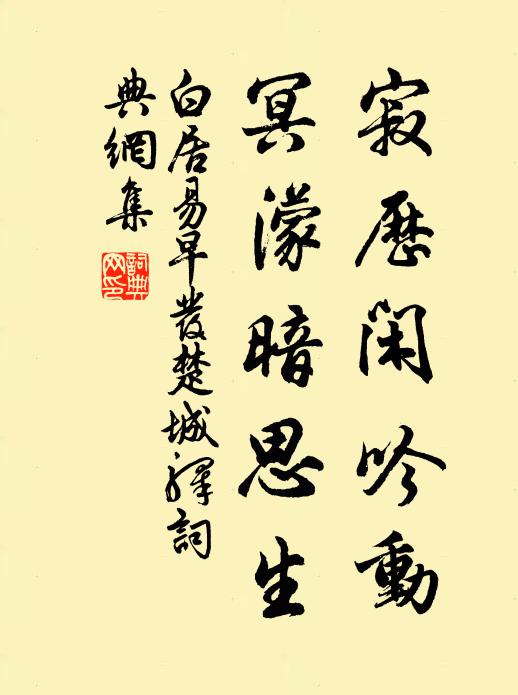 寂歷閑吟動
冥濛暗思生
白居易早發楚城驛詞
典網集
詞典網印